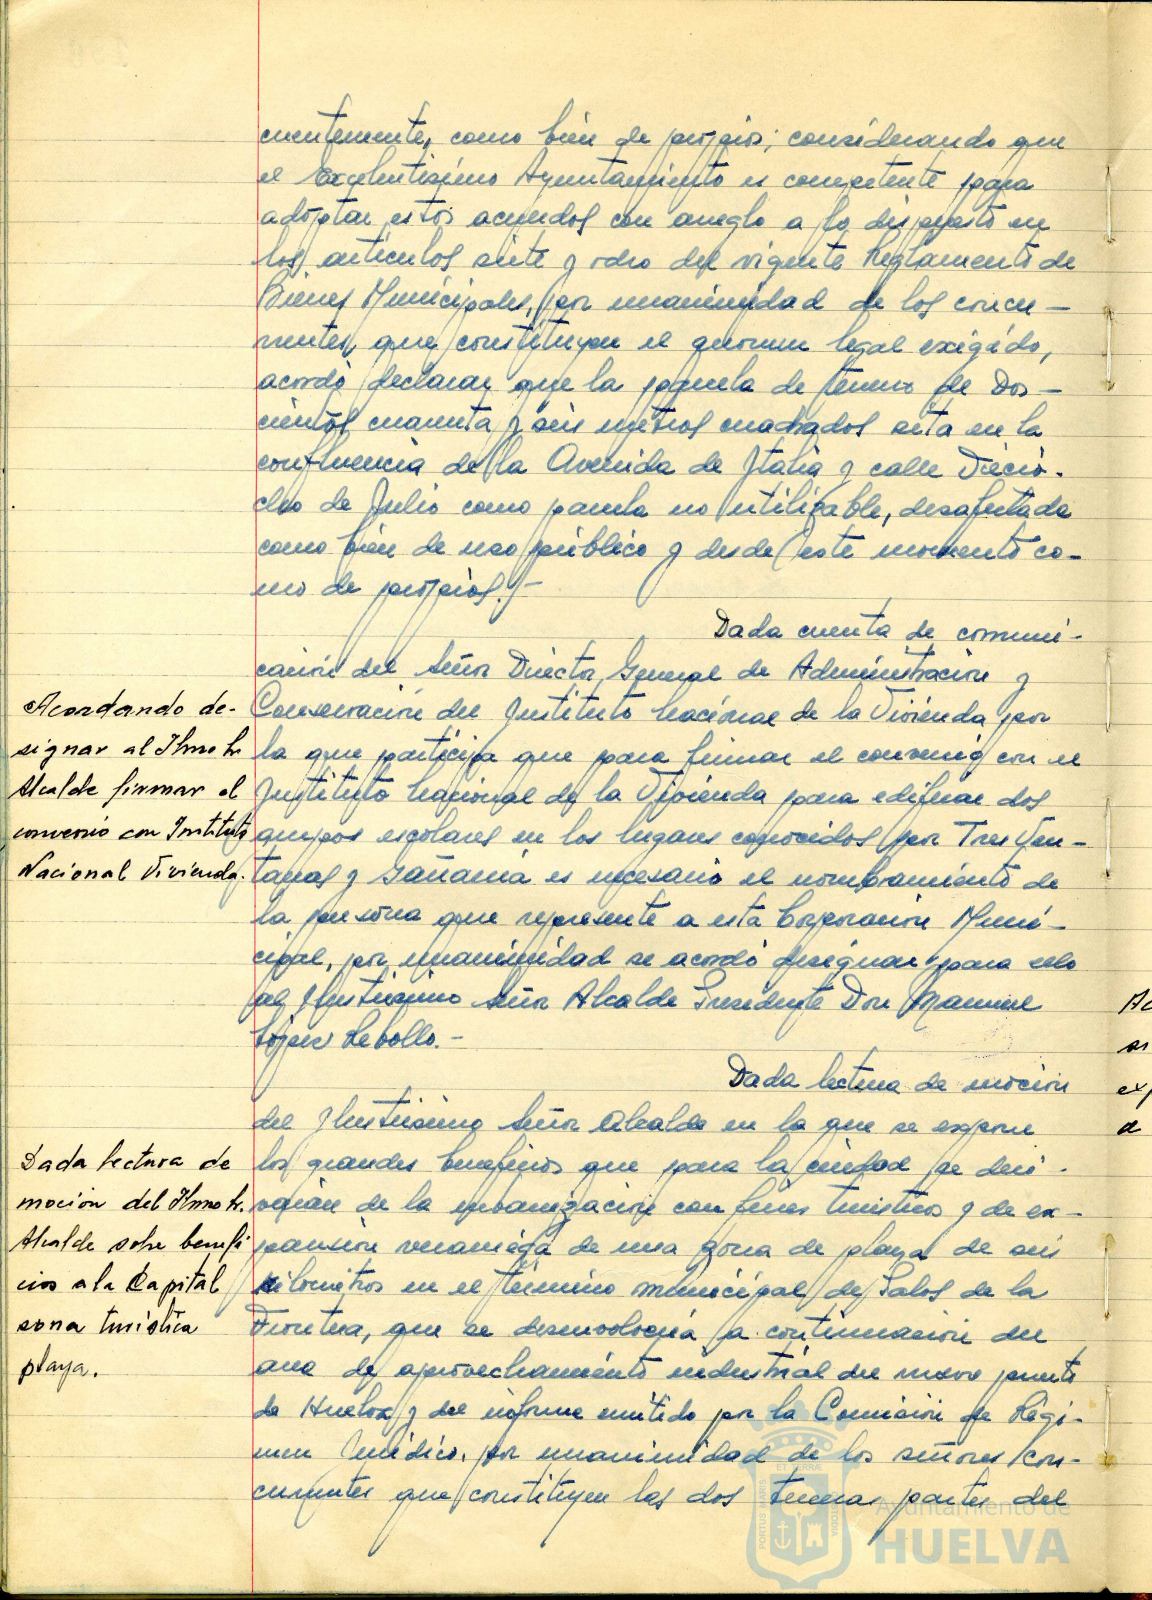 cuentemente, como bién de própios; considerando que
el Excelentísimo Ayuntamiento es competente para
adóptar estos acuerdos con arreglo a lo dispuesto en
los artículos siete y ocho del vigente Reglamento de
Bienes Municipales, por unanimidad de los concu-
rrentes, que constituyen el quorum legal exigído,
acordó declarar que la parcela de terreno de Dos-
cientos cuarenta y seis metros cuadrados sita en la
confluencia de la Avenida de Italia y calle Diecio-
cho de Julio como parcela no utilizable, desafectada
como bién de uso público y desde este momento co-
mo de propios.-
Dada cuenta de comuni-
cación del Señor Director General de Administración y
Conservación del Instituto Nacional de la Vivienda por
la que participa que para firmar el convenio con el
Instituto Nacional de la Vivienda para edificar dos
grupos escolares en los lugares conocidos por Tres Ven-
tanas y Gañania es necesario el nombramiento de
la persona que represente a esta Corporación Muni-
cipal, por unanimidad se acordó designar para ello
al Ilustrísimo Señor Alcalde Presidente Don Manuel
López Rebollo.-
Acordando de-
signar al Ilmo Sr.
Alcalde firmar el
convenio con Instituto
Nacional Vivienda.
Dada lectura de moción
del Ilustrísimo Señor Alcalde en la que se expone
los grandes beneficios que para la ciudad se deri-
varían de la urbanización con fines turísticos y de ex-
pansión veraniega de una zona de playa de seis
kilómetros en el término municipal de Palos de la
Frontera, que se desenvolvería a continuación del
area de aprovechamiento industrial del nuevo puerto
de Huelva y del informe emitido por la Comisión de Régi-
men Jurídico, por unanimidad de los señores con-
currentes que constituyen las dos terceras partes del
Dada lectura de
moción del Ilmo Sr.
Alcalde sobre benefi
cios a la Capital
zona turística
playa.
Ayuntamiento de
HUELVA
PORTUS MARIS
ET TERRÆ
CUSTODIA